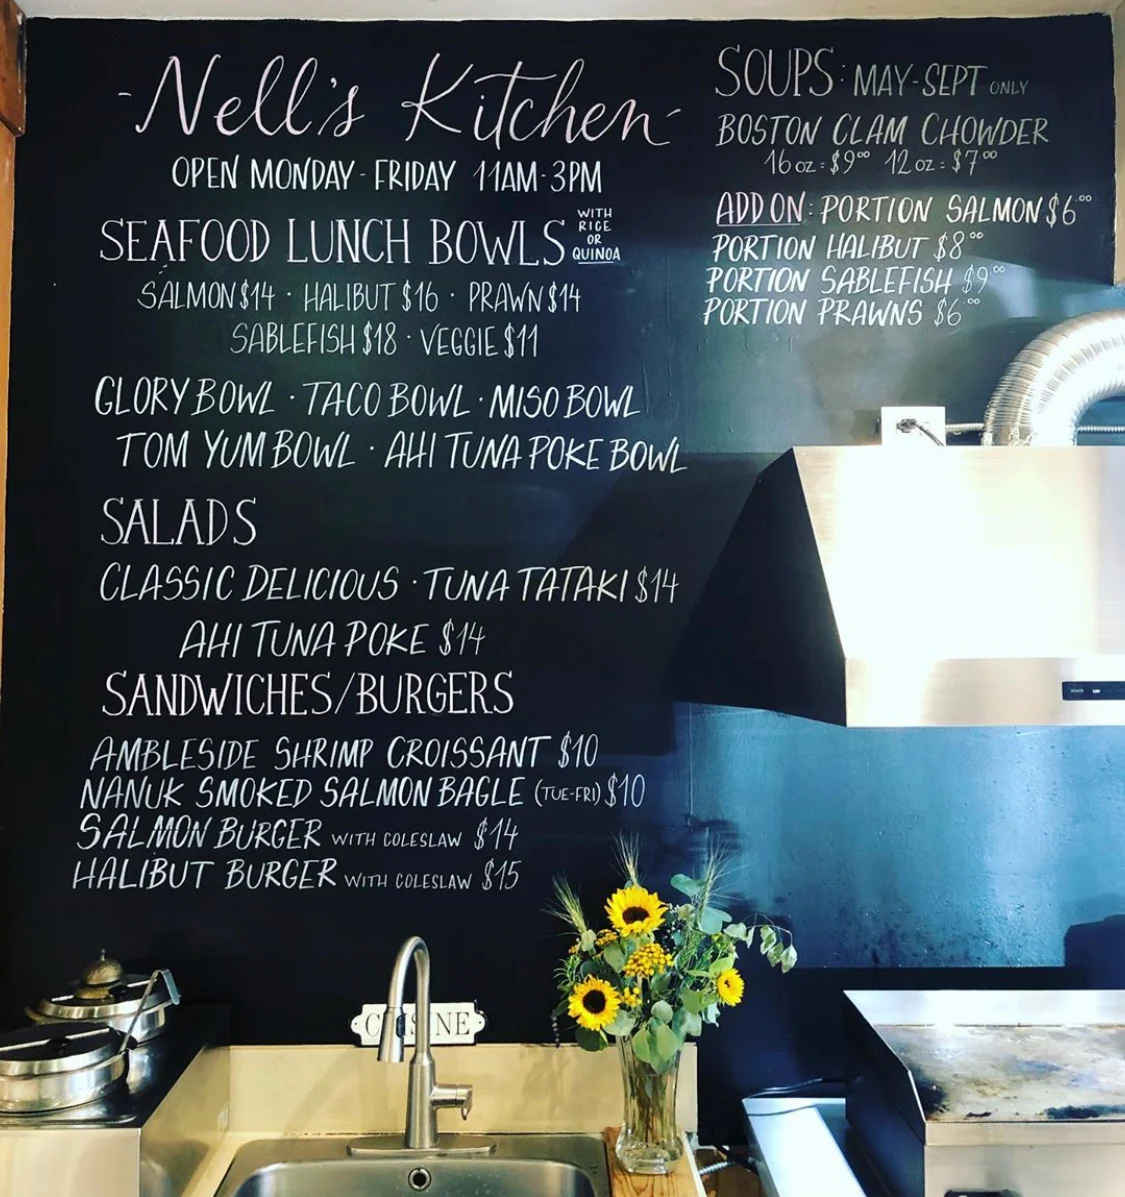 -Nell's Kitchen-
OPEN MONDAY-FRIDAY 11AM-3PM
SEAFOOD LUNCH BOWLS WITH RICE OR QUINOA
SALMON $14 · HALIBUT $16 · PRAWN $14
SABLEFISH $18 · VEGGIE $11
GLORY BOWL · TACO BOWL · MISO BOWL
TOM YUM BOWL · AHI TUNA POKE BOWL
SALADS
CLASSIC DELICIOUS · TUNA TATAKI $14
AHI TUNA POKE $14
SANDWICHES/BURGERS
AMBLESIDE SHRIMP CROISSANT $10
NANUK SMOKED SALMON BAGLE (TUE-FRI) $10
SALMON BURGER WITH COLESLAW $14
HALIBUT BURGER WITH COLESLAW $15
SOUPS: MAY-SEPT ONLY
BOSTON CLAM CHOWDER
16oz: $9.00 12oz: $7.00
ADD ON: PORTION SALMON $6.00
PORTION HALIBUT $8.00
PORTION SABLEFISH $9.00
PORTION PRAWNS $6.00
CUISINE